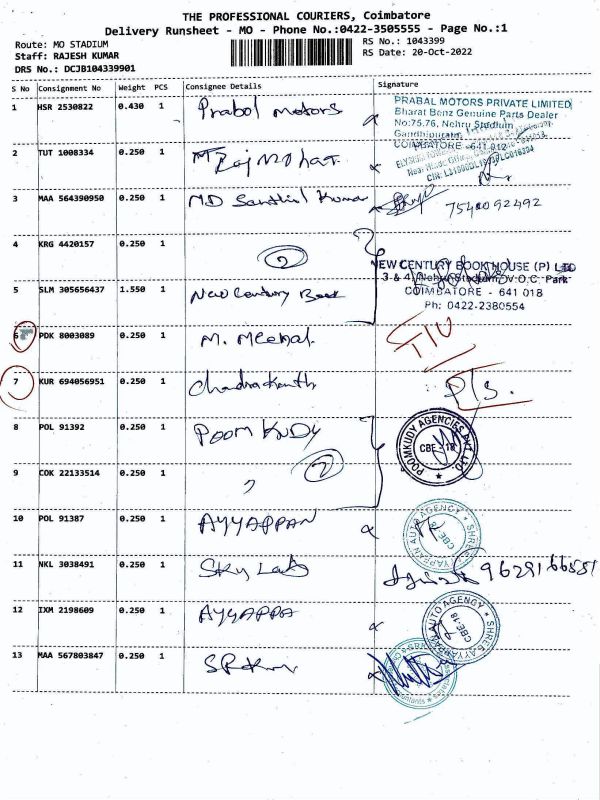 THE PROFESSIONAL COURIERS, Coimbatore
Delivery Runsheet - MO - Phone No.:0422-3505555 - Page No.:1
Route: MO STADIUM
Staff: RAJESH KUMAR
DRS No.: DCJB104339901
RS No.: 1043399
RS Date: 20-Oct-2022
S No Consignment No Weight PCS Consignee Details Signature
1 HSR 2530822 0.430 1 Prabal motors
PRABAL MOTORS PRIVATE LIMITED
Bharat Benz Genuine Parts Dealer
No:75,76, Nehru Stadium
Gandhipuram
COIMBATORE - 641 012
2 TUT 1008334 0.250 1
3 MAA 564390950 0.250 1 M.D Santhil Kumar 7540092492
4 KRG 4420157 0.250 1 2
NEW CENTURY BOOK HOUSE (P) LTD
3 & 4, Nehru Stadium, V.O.C. Park
COIMBATORE - 641 018
Ph: 0422-2380554
5 SLM 305656437 1.550 1 New Century Book
6 PDK 8003089 0.250 1 M. Meenal
7 KUR 694056951 0.250 1 Chandrakanth P/S.
8 POL 91392 0.250 1 POOMKUDY
POOMKUDY AGENCIES PVT LTD.
CBE - 18
9 COK 22133514 0.250 1 " 2
10 POL 91387 0.250 1 AYYAPPAN
SHREE AYYAPPAN AUTO AGENCY
CBE-18
11 NKL 3038491 0.250 1 Sky Lab 9629166551
12 IXM 2198609 0.250 1 AYYAPPA
SHREE AYYAPPAN AUTO AGENCY
CBE-18
13 MAA 567803847 0.250 1